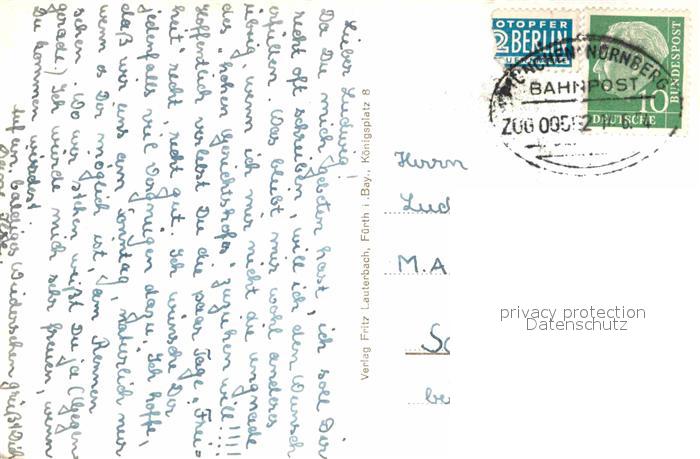 Lieber Ludwig!
Da Du mich gebeten hast, ich soll Dir
recht oft schreiben, will ich den Wunsch
erfüllen. Was bleibt mir wohl anderes
übrig, wenn ich mir nicht die Ungnade
des "hohen Gerichtshofes" zuziehen will!!!!
Hoffentlich verlebst Du die paar Tage "Frei-
heit" recht, recht gut. Ich wünsche Dir
jedenfalls viel Vergnügen dazu. Ich hoffe,
daß wir uns am Sonntag, natürlich nur
wenn es Dir möglich ist, am Rennen
sehen. Wo wir stehen weißt Du ja (Gegen-
gerade.) Ich würde mich sehr freuen, wenn
Du kommen würdest
Auf ein baldiges Wiedersehen grüßt Dich
Deine
Verlag Fritz Lauterbach, Fürth i. Bay., Königsplatz 8
NOTOPFER
2 BERLIN
STEUERMARKE
MÜNCHEN-NÜRNBERG
BAHNPOST
ZUG 00552
10
DEUTSCHE
BUNDESPOST
Herrn
Lud
M.A
Sc
be
privacy protection
Datenschutz